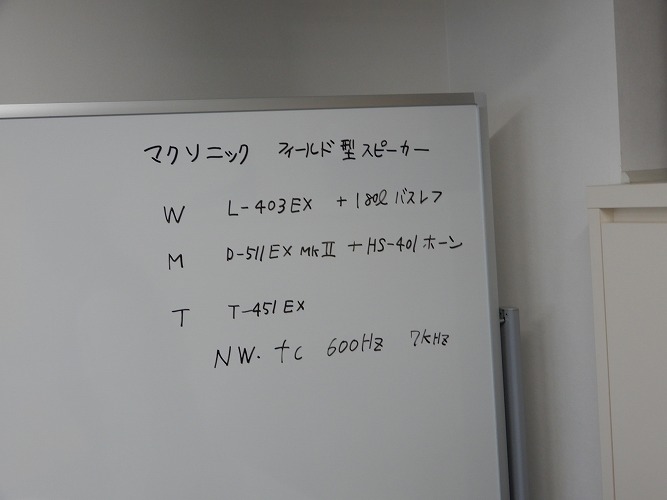 マクソニック フィールド型スピーカー
W L-403EX + 180ℓ バスレフ
M D-511EX MKII + HS-401 ホーン
T T-451EX
NW. fc 600Hz 7kHz